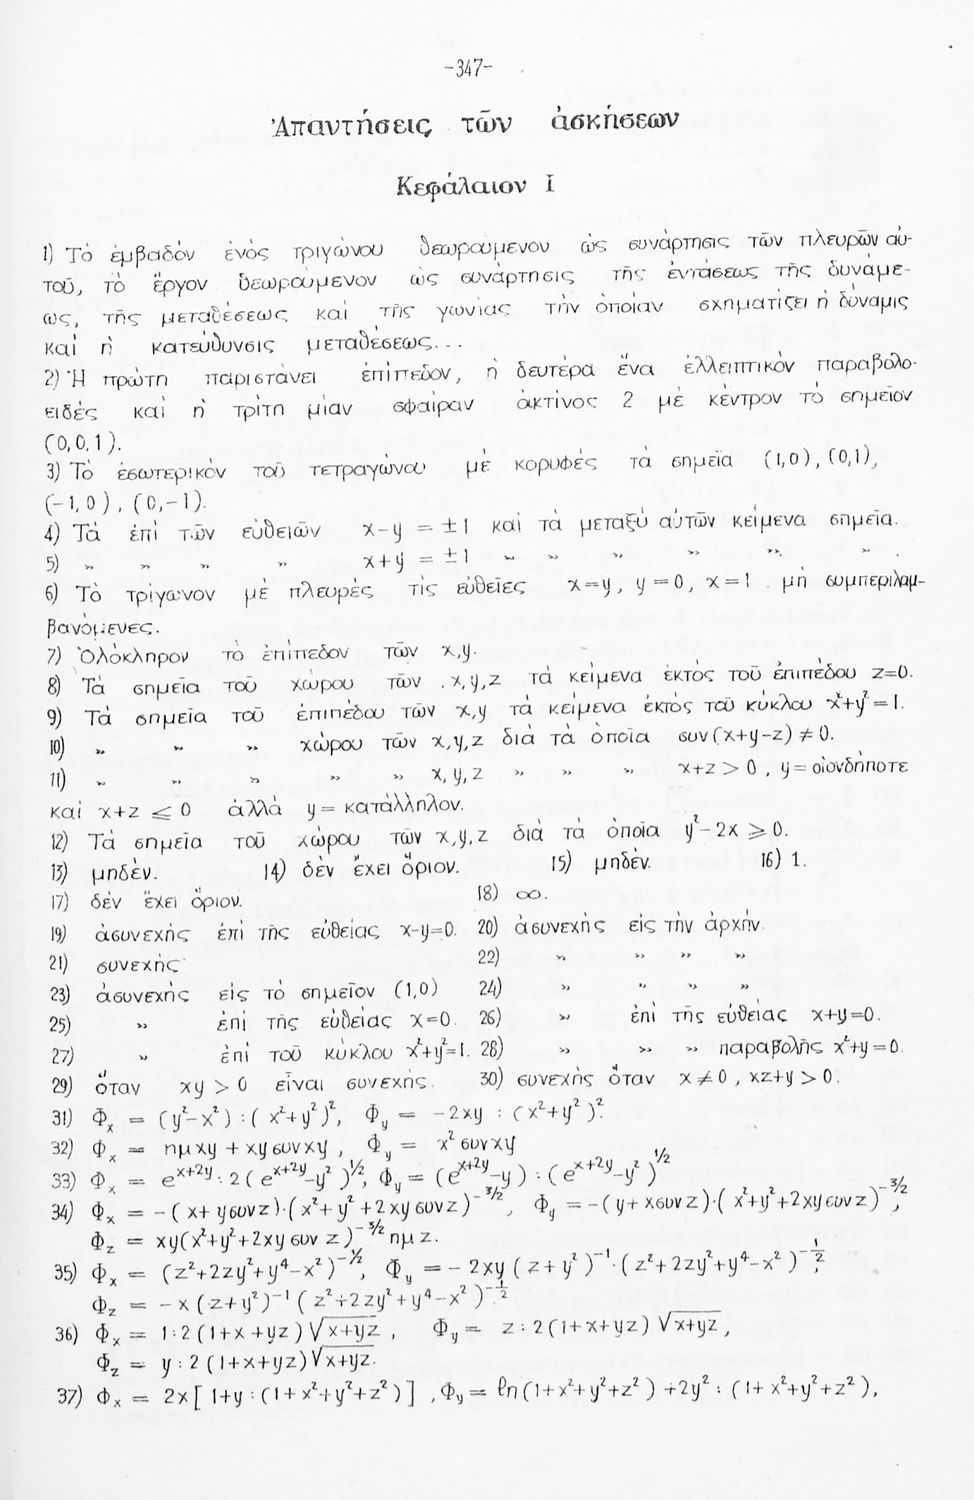 -347-
Ἀπαντήσεις τῶν ἀσκήσεων
Κεφάλαιον I
1) Τὸ ἐμβαδὸν ἑνὸς τριγώνου θεωρούμενον ὡς συνάρτησις τῶν πλευρῶν αὐ-
τοῦ, τὸ ἔργον θεωρούμενον ὡς συνάρτησις τῆς ἐντάσεως τῆς δυνάμε-
ως, τῆς μεταθέσεως καὶ τῆς γωνίας τὴν ὁποίαν σχηματίζει ἡ δύναμις
καὶ ἡ κατεύθυνσις μεταθέσεως...
2) Ἡ πρώτη παριστάνει ἐπίπεδον, ἡ δευτέρα ἕνα ἐλλειπτικὸν παραβολο-
ειδὲς καὶ ἡ τρίτη μίαν σφαῖραν ἀκτῖνος 2 μὲ κέντρον τὸ σημεῖον
(0,0,1).
3) Τὸ ἐσωτερικὸν τοῦ τετραγώνου μὲ κορυφὲς τὰ σημεῖα (1,0), (0,1),
(-1,0), (0,-1).
4) Τὰ ἐπὶ τῶν εὐθειῶν x-y = ±1 καὶ τὰ μεταξὺ αὐτῶν κείμενα σημεῖα.
5) „ „ „ „ x+y = ±1 „ „ „ „ „ „ .
6) Τὸ τρίγωνον μὲ πλευρὲς τὶς εὐθεῖες x=y, y=0, x=1 . μὴ συμπεριλαμ-
βανόμενες.
7) Ὁλόκληρον τὸ ἐπίπεδον τῶν x,y.
8) Τὰ σημεῖα τοῦ χώρου τῶν x,y,z τὰ κείμενα ἐκτὸς τοῦ ἐπιπέδου z=0.
9) Τὰ σημεῖα τοῦ ἐπιπέδου τῶν x,y τὰ κείμενα ἐκτὸς τοῦ κύκλου x²+y²=1.
10) „ „ „ χώρου τῶν x,y,z διὰ τὰ ὁποῖα συν(x+y-z) ≠ 0.
11) „ „ „ „ „ x,y,z „ „ „ x+z > 0 , y = οἱονδήποτε
καὶ x+z ⩽ 0 ἀλλὰ y = κατάλληλον.
12) Τὰ σημεῖα τοῦ χώρου τῶν x,y,z διὰ τὰ ὁποῖα y²-2x ⩾ 0.
13) μηδέν. 14) δὲν ἔχει ὅριον. 15) μηδέν. 16) 1.
17) δὲν ἔχει ὅριον. 18) ∞.
19) ἀσυνεχὴς ἐπὶ τῆς εὐθείας x-y=0. 20) ἀσυνεχὴς εἰς τὴν ἀρχήν.
21) συνεχὴς 22) „ „ „ „
23) ἀσυνεχὴς εἰς τὸ σημεῖον (1,0) 24) „ „ „ „
25) „ ἐπὶ τῆς εὐθείας x=0. 26) „ ἐπὶ τῆς εὐθείας x+y=0.
27) „ ἐπὶ τοῦ κύκλου x²+y²=1. 28) „ „ „ παραβολῆς x²+y=0.
29) ὅταν xy > 0 εἶναι συνεχής. 30) συνεχὴς ὅταν x ≠ 0 , xz+y > 0.
31) Φₓ = (y²-x²) : (x²+y²)², Φ_y = -2xy : (x²+y²)².
32) Φₓ = ημxy + xy συνxy , Φ_y = x² συνxy
33) Φₓ = e^{x+2y} : 2(e^{x+2y}-y²)^{1/2}, Φ_y = (e^{x+2y}-y) : (e^{x+2y}-y²)^{1/2}
34) Φₓ = -(x+yσυνz)·(x²+y²+2xyσυνz)^{-3/2}, Φ_y = -(y+xσυνz)·(x²+y²+2xyσυνz)^{-3/2},
Φ_z = xy(x²+y²+2xyσυν z)^{-3/2} ημz.
35) Φₓ = (z²+2zy²+y⁴-x²)^{-1/2}, Φ_y = -2xy(z+y²)^{-1}·(z²+2zy²+y⁴-x²)^{-1/2},
Φ_z = -x(z+y²)^{-1}(z²+2zy²+y⁴-x²)^{-1/2}.
36) Φₓ = 1:2(1+x+yz)√x+yz , Φ_y = z:2(1+x+yz)√x+yz,
Φ_z = y:2(1+x+yz)√x+yz.
37) Φₓ = 2x[1+y:(1+x²+y²+z²)] , Φ_y = ℓn(1+x²+y²+z²)+2y² : (1+x²+y²+z²),